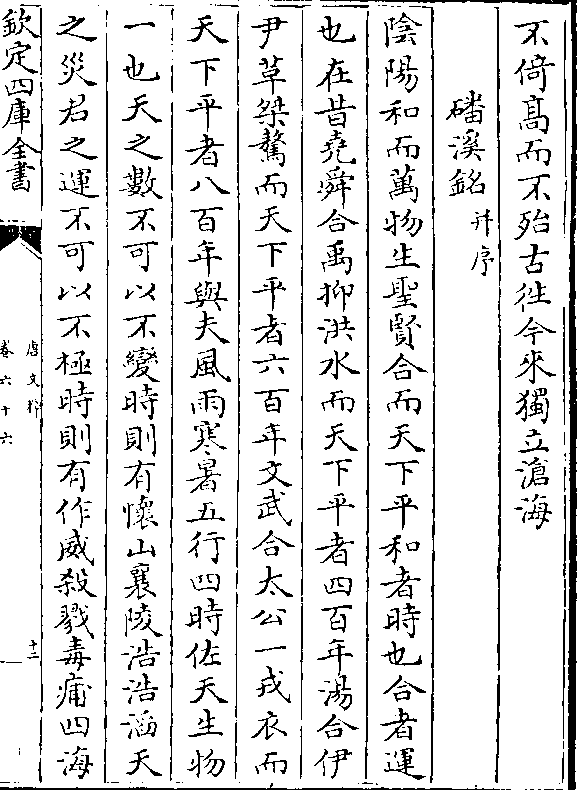 不倚髙而不殆古徃今來獨立滄海
磻溪銘并序
陰陽和而萬物生聖賢合而天下平和者時也合者運
也在昔堯舜合禹抑洪水而天下平者四百年湯合伊
尹革桀驁而天下平者六百年文武合太公一戎衣而
天下平者八百年與夫風雨寒暑五行四時佐天生物
一也天之數不可以不變時則有懷山襄陵浩浩滔天
之災君之運不可以不極時則有作威殺戮毒痡四海
欽定四庫全書
唐文粹
卷六十六
十二